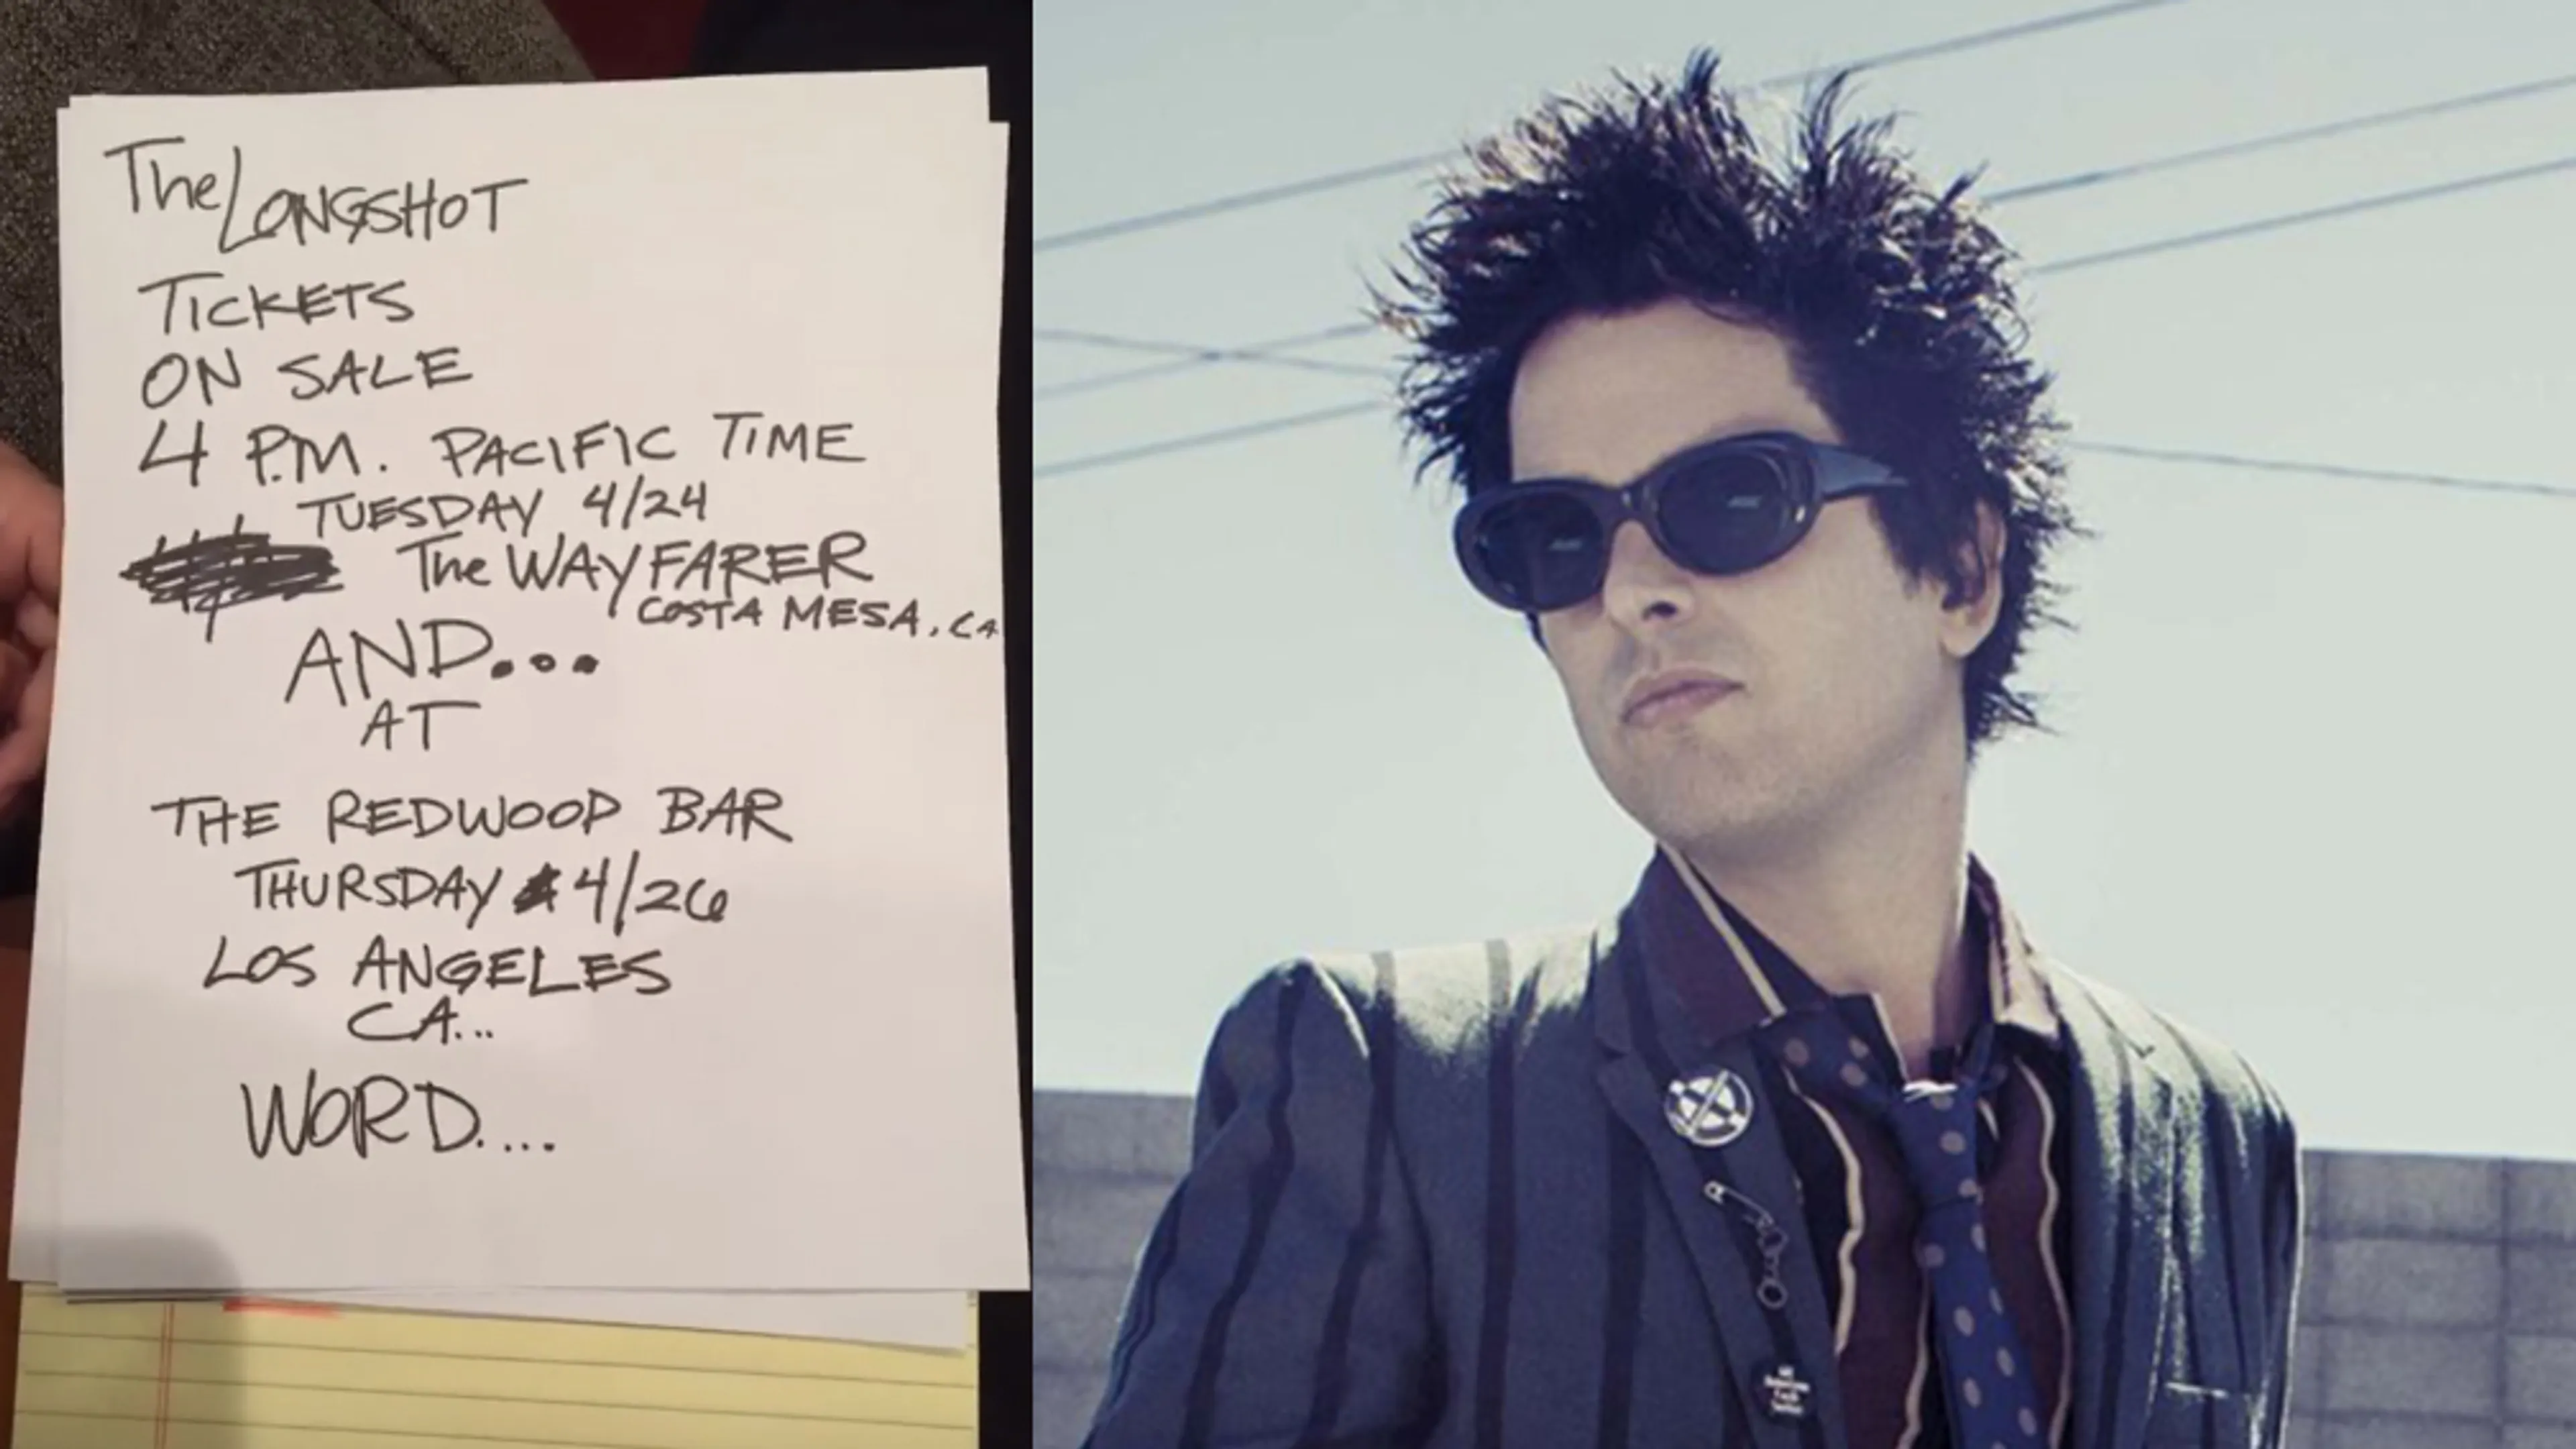 The LONGSHOT
TICKETS
ON SALE
4 P.M. PACIFIC TIME
TUESDAY 4/24
The WAYFARER
COSTA MESA, CA
AND...
AT
THE REDWOOD BAR
THURSDAY 4/26
LOS ANGELES
CA...
WORD....